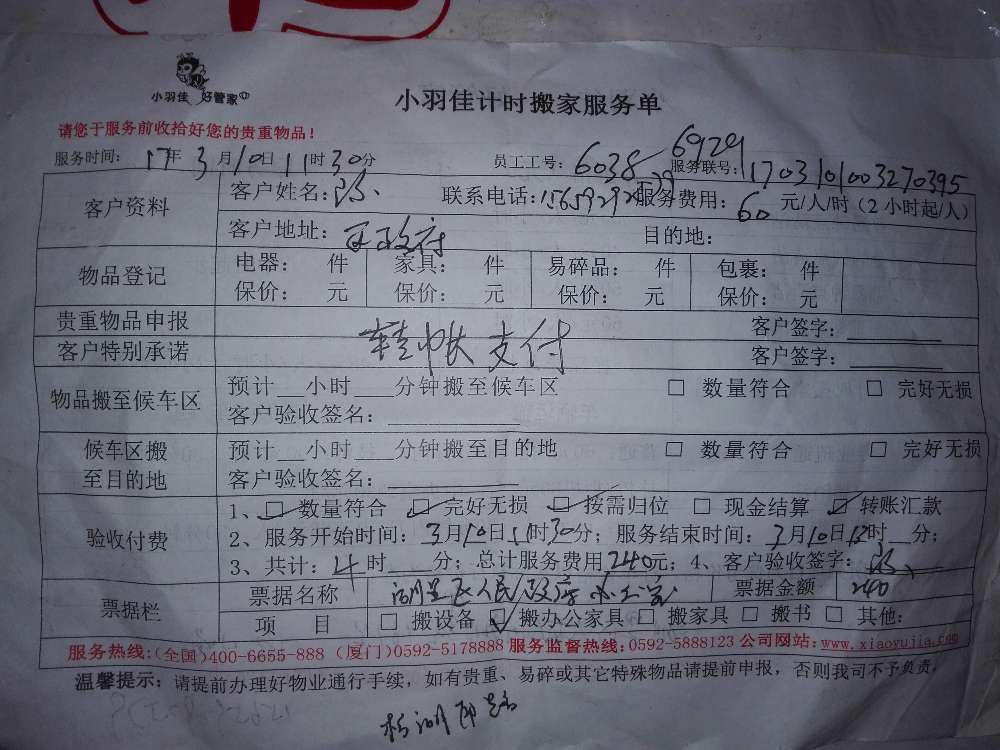 小羽佳 好管家
小羽佳计时搬家服务单
请您于服务前收拾好您的贵重物品！
服务时间： 17年 3月10日11时30分 员工工号：6038 6929 服务联号：1703101003270395
客户资料 客户姓名： 联系电话： 服务费用：60元/人/时（2小时起/人）
客户地址：区政府 目的地：
物品登记 电器： 件 家具： 件 易碎品： 件 包裹： 件
保价： 元 保价： 元 保价： 元 保价： 元
贵重物品申报 客户签字：
转帐支付
客户特别承诺 客户签字：
物品搬至候车区 预计__小时___分钟搬至候车区 □ 数量符合 □ 完好无损
客户验收签名：
候车区搬至目的地 预计__小时___分钟搬至目的地 □ 数量符合 □ 完好无损
客户验收签名：
验收付费 1、☑数量符合 ☑完好无损 ☑按需归位 □现金结算 ☑转账汇款
2、服务开始时间：3月10日11时30分；服务结束时间：3月10日 时__分；
3、共计：4时___分；总计服务费用240元；4、客户验收签字：
票据栏 票据名称 湖里区人民政府办公室 票据金额 240
项 目 □搬设备 ☑搬办公家具 □搬家具 □搬书 □其他：
服务热线：(全国)400-6655-888 (厦门)0592-5178888 服务监督热线：0592-5888123 公司网站：www.xiaoyujia.com
温馨提示：请提前办理好物业通行手续，如有贵重、易碎或其它特殊物品请提前申报，否则我司不予负责，